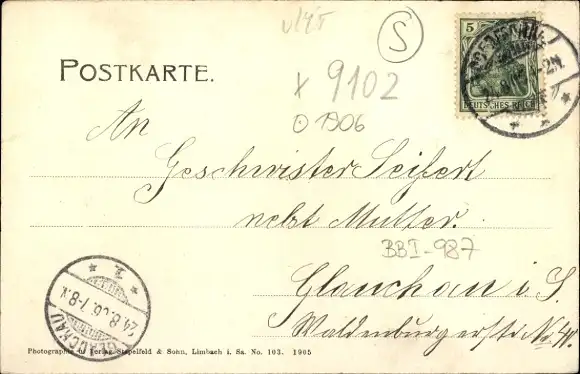 POSTKARTE.
5
DEUTSCHES REICH
S
9102
1906
An
Geschwister Seifert
nebst Mutter.
BBI-987
Glauchau i. S.
Waldenburgerstr No 41.
GLAUCHAU
24.8.06. 7-8.V.
Photographie u Verlag Stapelfeld & Sohn, Limbach i. Sa. No. 103. 1905